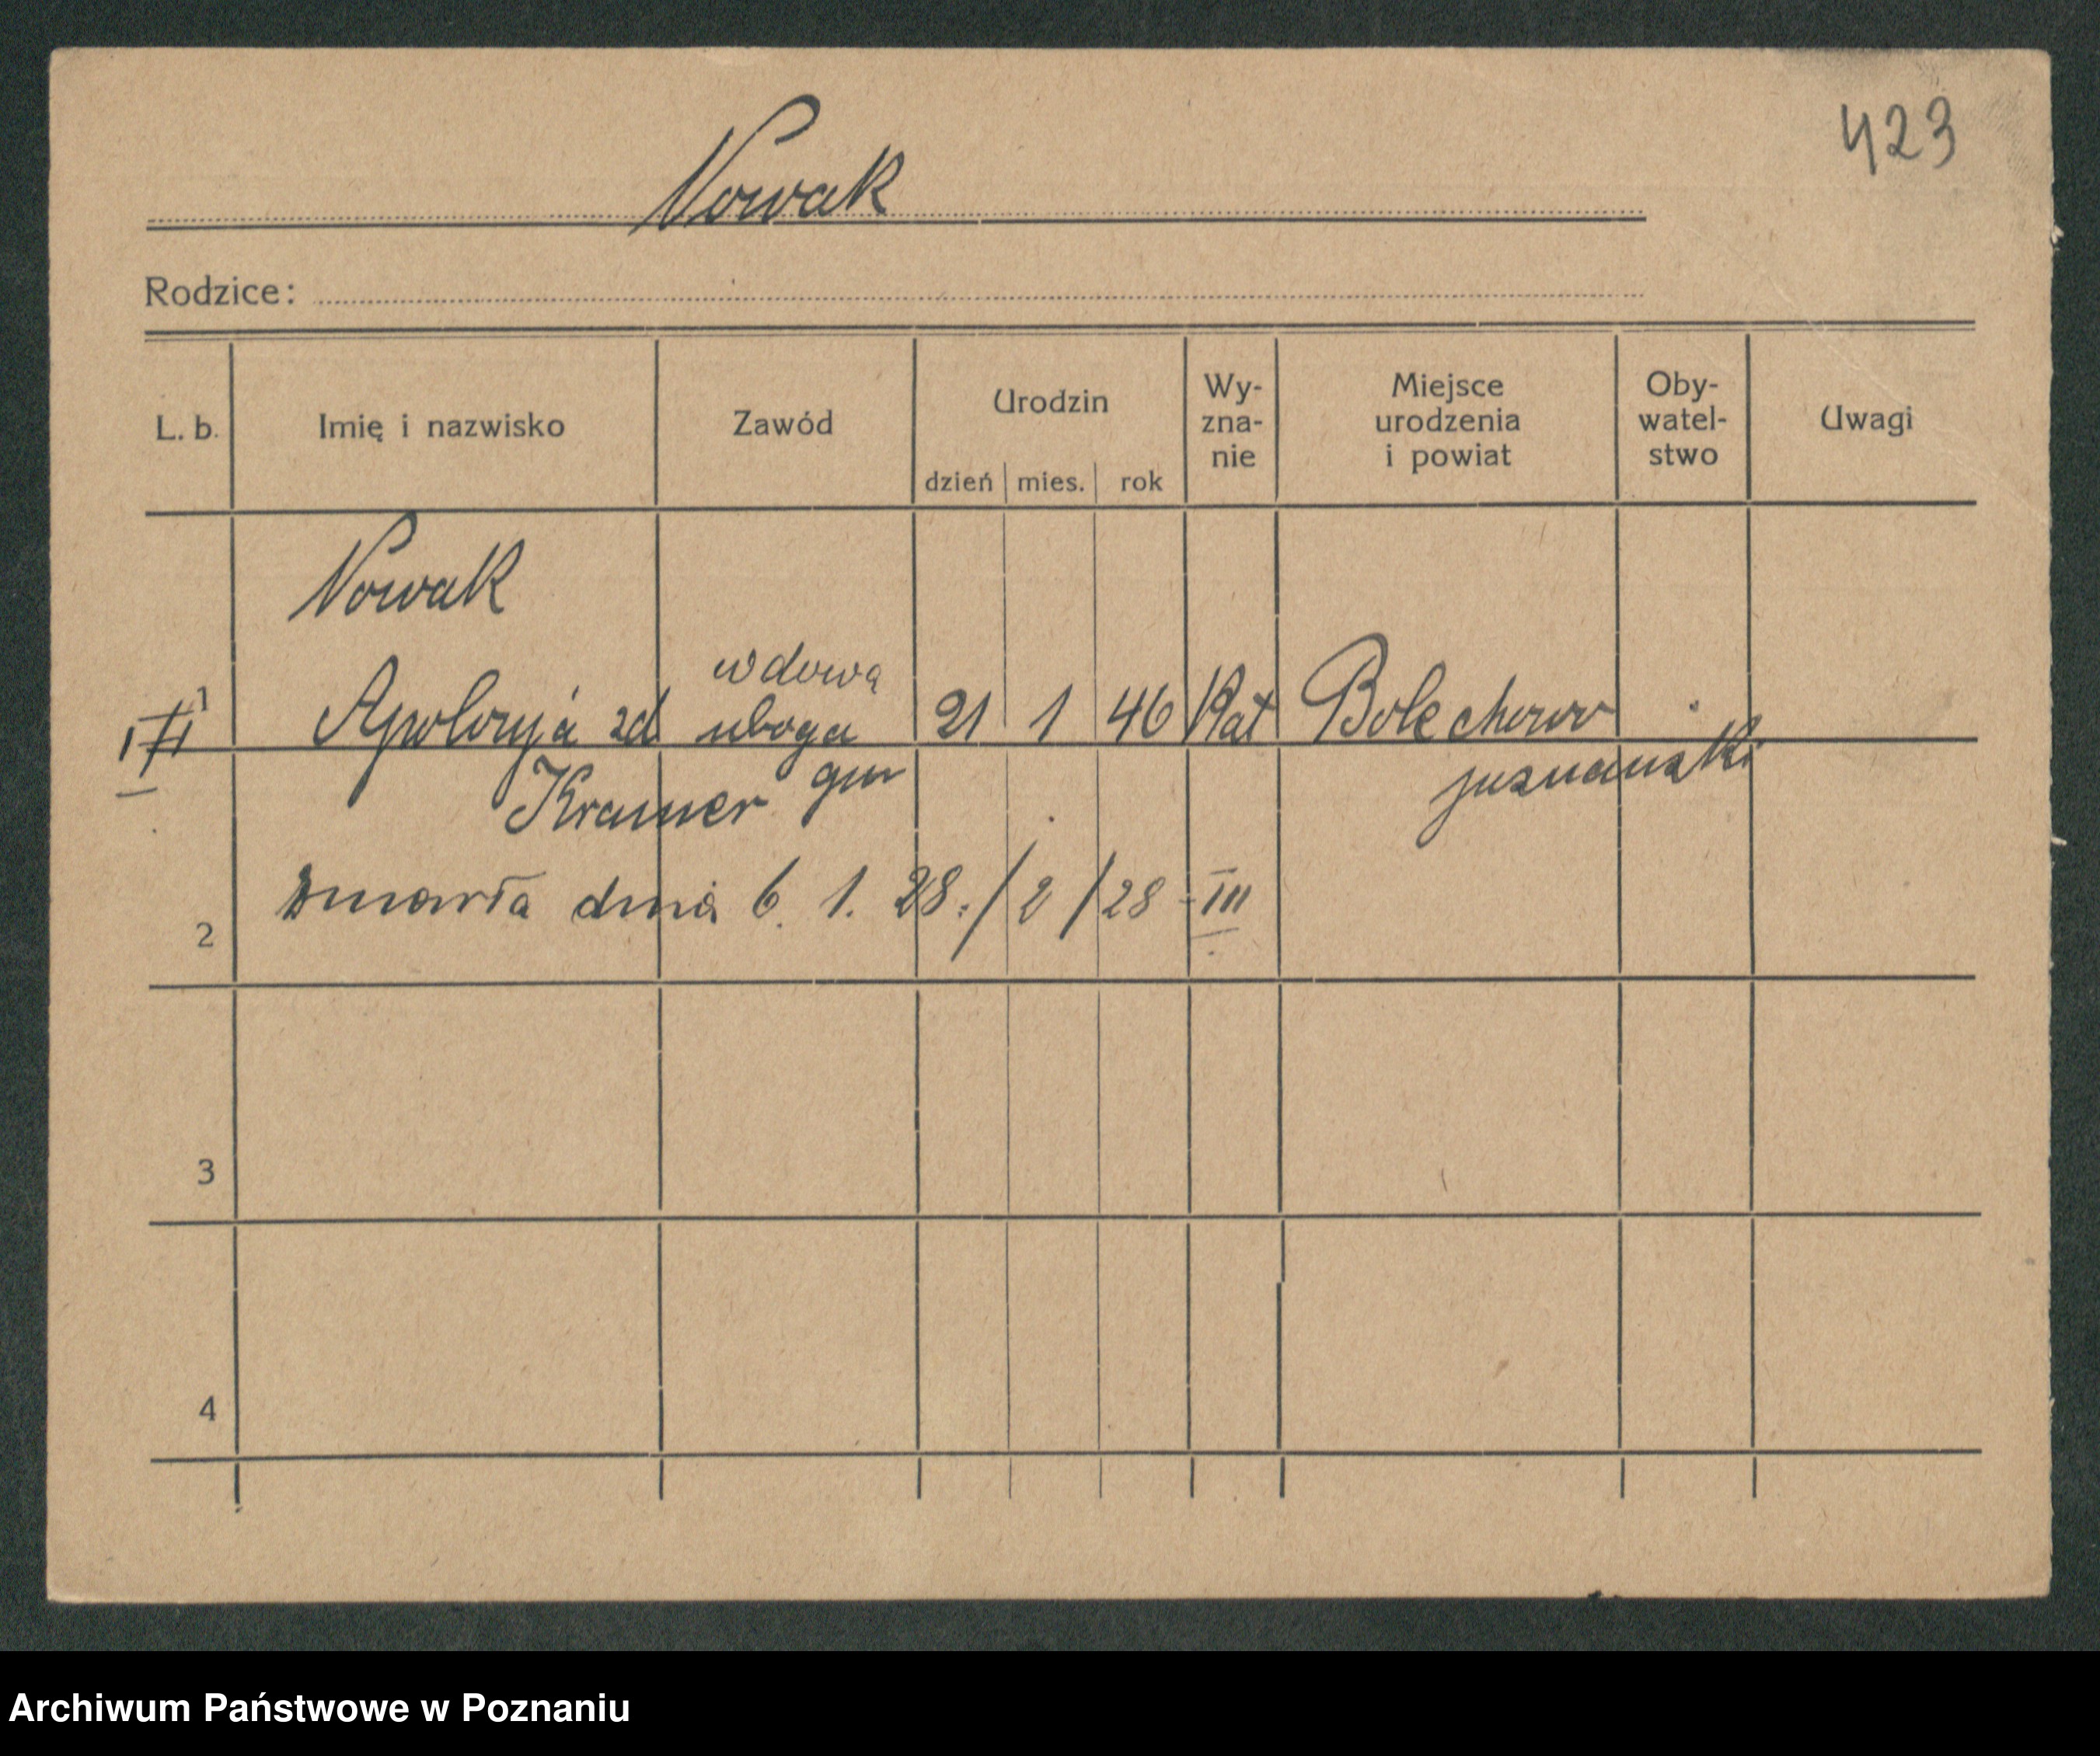 423
Nowak
Rodzice:
L. b. Imię i nazwisko Zawód Urodzin dzień mies. rok Wy-zna-nie Miejsce urodzenia i powiat Oby-watel-stwo Uwagi
Nowak
wdowa
1 Apolonja zd uboga 21 1 46 Kat Bolechowo
III Kramer gm poznański
2 zmarła dnia 6. 1. 28. / 2 / 28 - III
3
4
Archiwum Państwowe w Poznaniu